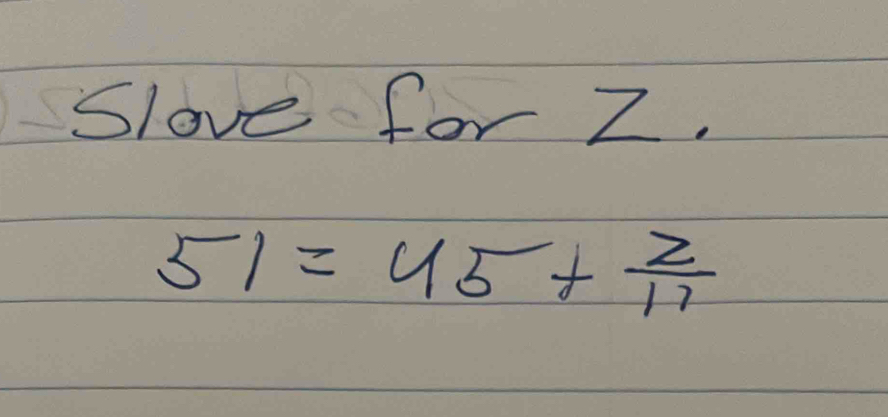 Slove for Z.
51 = 45 + z/17